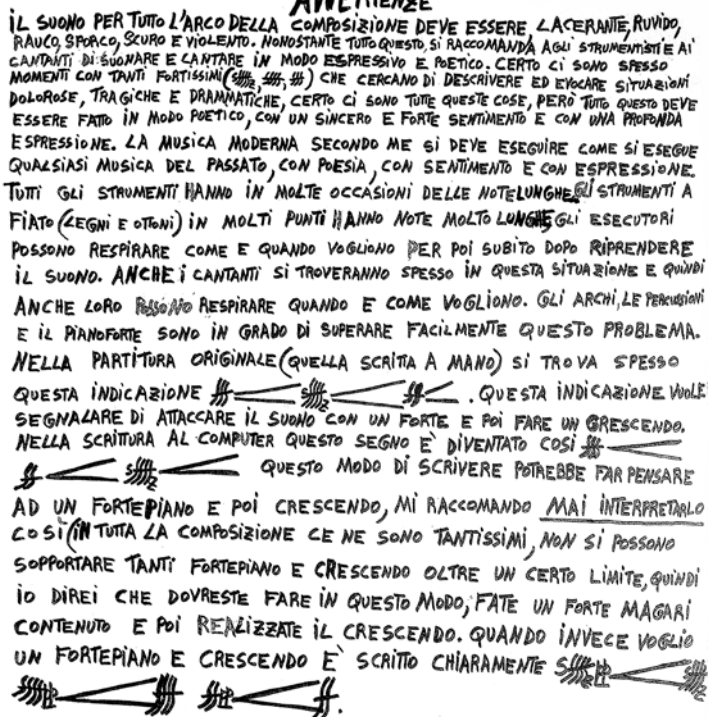 AVVERTENZE
IL SUONO PER TUTTO L'ARCO DELLA COMPOSIZIONE DEVE ESSERE LACERANTE, RUVIDO,
RAUCO, SPORCO, SCURO E VIOLENTO. NONOSTANTE TUTTO QUESTO, SI RACCOMANDA AGLI STRUMENTISTI E AI
CANTANTI DI SUONARE E CANTARE IN MODO ESPRESSIVO E POETICO. CERTO CI SONO SPESSO
MOMENTI CON TANTI FORTISSIMI (sffffz, ffff, fff) CHE CERCANO DI DESCRIVERE ED EVOCARE SITUAZIONI
DOLOROSE, TRAGICHE E DRAMMATICHE, CERTO CI SONO TUTTE QUESTE COSE, PERÒ TUTTO QUESTO DEVE
ESSERE FATTO IN MODO POETICO, CON UN SINCERO E FORTE SENTIMENTO E CON UNA PROFONDA
ESPRESSIONE. LA MUSICA MODERNA SECONDO ME SI DEVE ESEGUIRE COME SI ESEGUE
QUALSIASI MUSICA DEL PASSATO, CON POESIA, CON SENTIMENTO E CON ESPRESSIONE.
TUTTI GLI STRUMENTI HANNO IN MOLTE OCCASIONI DELLE NOTE LUNGHE, GLI STRUMENTI A
FIATO (LEGNI E OTTONI) IN MOLTI PUNTI HANNO NOTE MOLTO LUNGHE GLI ESECUTORI
POSSONO RESPIRARE COME E QUANDO VOGLIONO PER POI SUBITO DOPO RIPRENDERE
IL SUONO. ANCHE I CANTANTI SI TROVERANNO SPESSO IN QUESTA SITUAZIONE E QUINDI
ANCHE LORO POSSONO RESPIRARE QUANDO E COME VOGLIONO. GLI ARCHI, LE PERCUSSIONI
E IL PIANOFORTE SONO IN GRADO DI SUPERARE FACILMENTE QUESTO PROBLEMA.
NELLA PARTITURA ORIGINALE (QUELLA SCRITTA A MANO) SI TROVA SPESSO
QUESTA INDICAZIONE fff sffffz ff . QUESTA INDICAZIONE VUOLE
SEGNALARE DI ATTACCARE IL SUONO CON UN FORTE E POI FARE UN CRESCENDO.
NELLA SCRITTURA AL COMPUTER QUESTO SEGNO E' DIVENTATO COSÌ fff
ff sffffz QUESTO MODO DI SCRIVERE POTREBBE FAR PENSARE
AD UN FORTEPIANO E POI CRESCENDO, MI RACCOMANDO MAI INTERPRETARLO
COSÌ (IN TUTTA LA COMPOSIZIONE CE NE SONO TANTISSIMI, NON SI POSSONO
SOPPORTARE TANTI FORTEPIANO E CRESCENDO OLTRE UN CERTO LIMITE, QUINDI
IO DIREI CHE DOVRESTE FARE IN QUESTO MODO, FATE UN FORTE MAGARI
CONTENUTO E POI REALIZZATE IL CRESCENDO. QUANDO INVECE VOGLIO
UN FORTEPIANO E CRESCENDO E' SCRITTO CHIARAMENTE